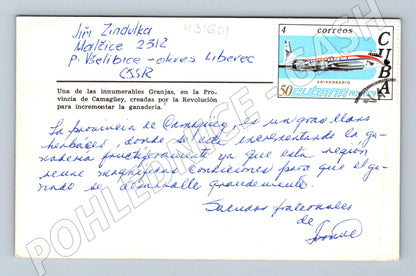 Jiří Zindulka
431601
Malčice 2312
p. Všelibice - okres Liberec
ČSSR
4 correos
CUBA
ANIVERSARIO
50 CUBANA 1929-1979
Una de las innumerables Granjas, en la Pro-
vincia de Camagüey, creadas por la Revolución
para incrementar la ganadería.
La provincia de Camagüey, es un gran llano
herbáceo, donde se está incrementando la ga-
nadería fructíferamente ya que esta región
reune magníficas condiciones para que el ga-
nado se desarrolle grandemente.
Saludos fraternales
de
POHLEDNICE - CASH